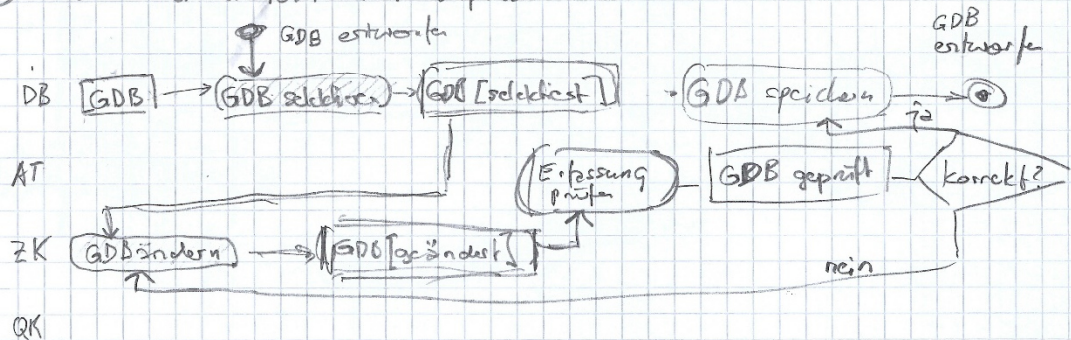 GDB entworfen
GDB
entworfen
DB
GDB
GDB selektieren
GDB [selektiert]
GDB speichern
ja
AT
Erfassung
prüfen
GDB geprüft
korrekt?
ZK
GDB ändern
GDB [geändert]
nein
QK